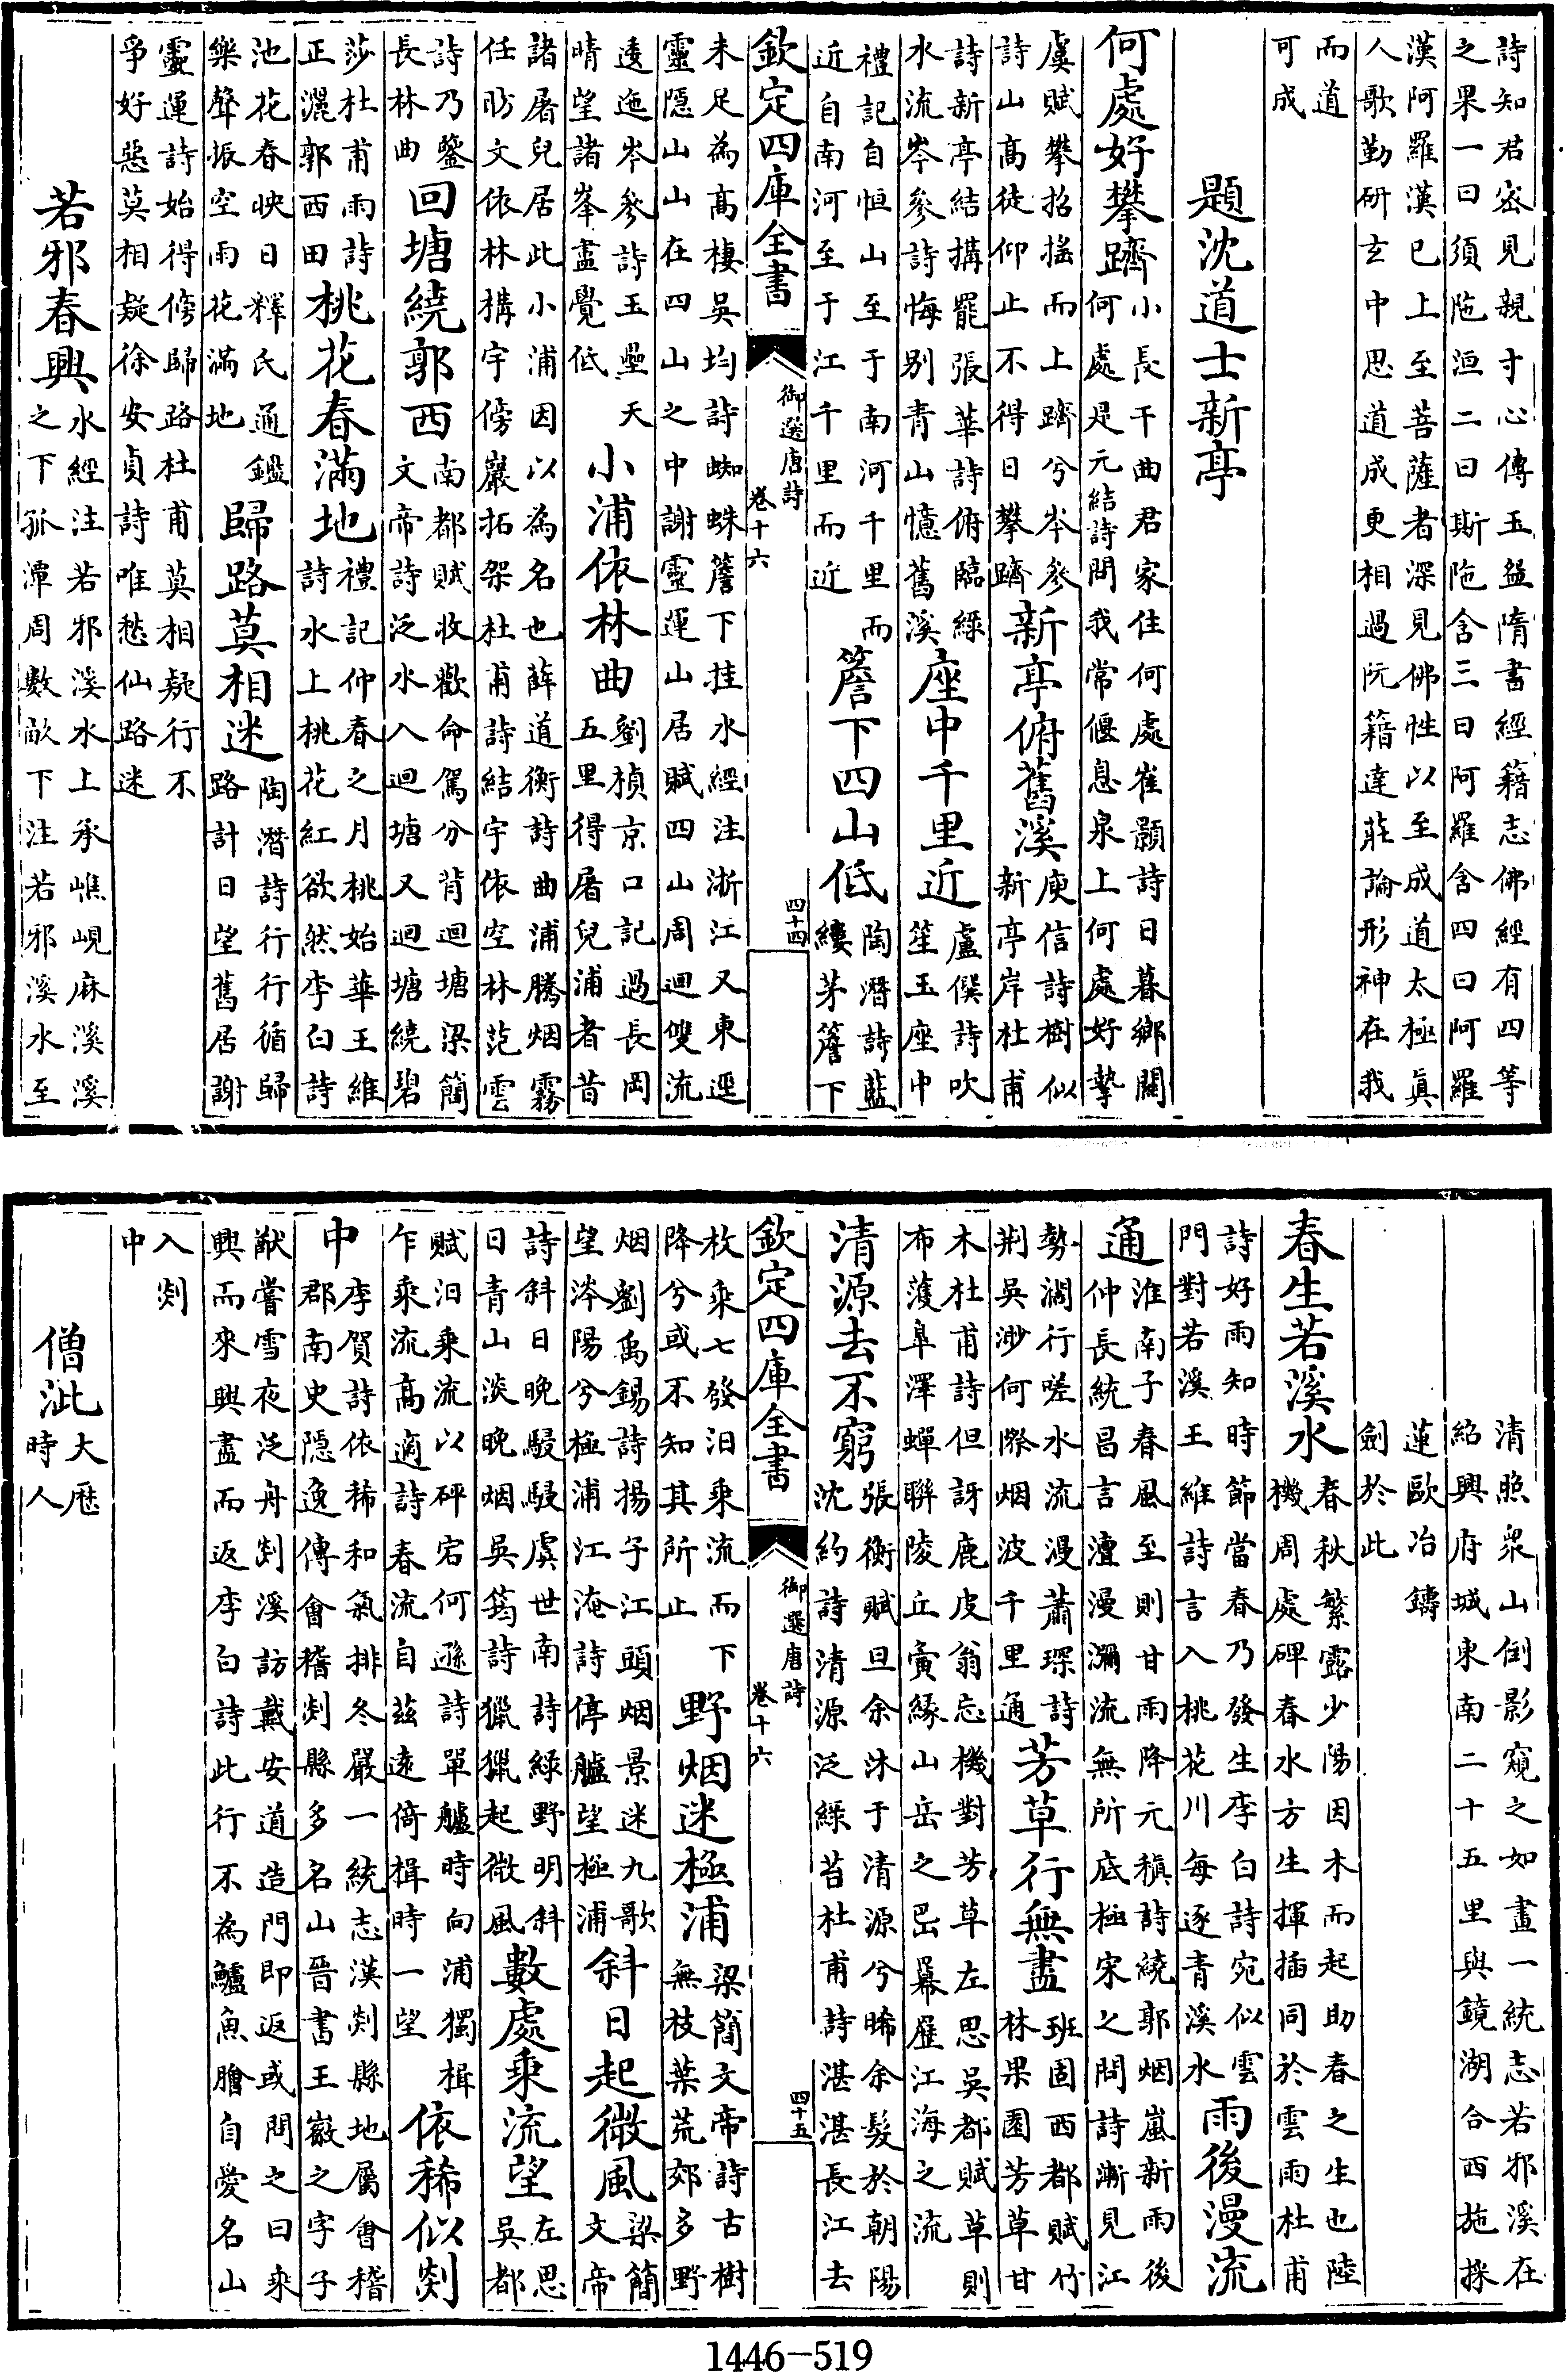 詩知君宻見親寸心傳玉盌隋書經籍志佛經有四等
之果一曰須陁洹二曰斯陁含三曰阿羅含四曰阿羅
漢阿羅漢已上至菩薩者深見佛性以至成道太極真
人歌勤研玄中思道成更相過阮籍達莊論形神在我
而道
可成
題沈道士新亭
何處好攀躋
小長干曲君家住何處崔顥詩日暮鄉關
何處是元結詩問我常偃息泉上何處好摯
虞賦攀招搖而上躋兮岑參
詩山高徒仰止不得日攀躋
新亭俯舊溪
庾信詩樹似
新亭岸杜甫
詩新亭結搆罷張華詩俯臨綠
水流岑參詩悔别青山憶舊溪
座中千里近
盧僎詩吹
笙玉座中
禮記自恒山至于南河千里而
近自南河至于江千里而近
簷下四山低
陶潛詩藍
縷茅簷下
欽定四庫全書
御選唐詩
卷十六
四十四
未足為高棲吳均詩蜘蛛簷下挂水經注浙江又東逕
靈隱山山在四山之中謝靈運山居賦四山周迴雙流
逶迤岑參詩玉壘天
晴望諸峯盡覺低
小浦依林曲
劉楨京口記過長岡
五里得屠兒浦者昔
諸屠兒居此小浦因以為名也薛道衡詩曲浦騰烟霧
任昉文依林搆宇傍巖拓架杜甫詩結宇依空林范雲
詩乃鑒
長林曲
回塘繞郭西
南都賦收歡命駕分背迴塘梁簡
文帝詩泛水入迴塘又迴塘繞碧
莎杜甫雨詩
正灑郭西田
桃花春滿地
禮記仲春之月桃始華王維
詩水上桃花紅欲然李白詩
池花春映日釋氏通鑑
樂聲振空雨花滿地
歸路莫相迷
陶潛詩行行循歸
路計日望舊居謝
靈運詩始得傍歸路杜甫莫相疑行不
爭好惡莫相疑徐安貞詩唯愁仙路迷
若邪春興
水經注若邪溪水上承嶕峴麻溪溪
之下孤潭周數畝下注若邪溪水至
清照衆山倒影窺之如畫一統志若邪溪在
紹興府城東南二十五里與鏡湖合西施採
蓮歐冶鑄
劍於此
春生若溪水
春秋繁露少陽因木而起助春之生也陸
機周處碑春水方生揮插同於雲雨杜甫
詩好雨知時節當春乃發生李白詩宛似雲
門對若溪王維詩言入桃花川每逐青溪水
雨後漫流
通
淮南子春風至則甘雨降元稹詩繞郭烟嵐新雨後
仲長統昌言澶漫瀰流無所底極宋之問詩漸見江
勢濶行嗟水流漫蕭琛詩
荆吳渺何際烟波千里通
芳草行無盡
班固西都賦竹
林果園芳草甘
木杜甫詩但訝鹿皮翁忘機對芳草左思吳都賦草則
布濩臯澤蟬聯陵丘夤緣山岳之岊冪歷江海之流
清源去不窮
張衡賦旦余沐于清源兮晞余髮於朝陽
沈約詩清源泛綠苔杜甫詩湛湛長江去
欽定四庫全書
御選唐詩
卷十六
四十五
枚乘七發汨乘流而下
降兮或不知其所止
野烟迷極浦
梁簡文帝詩古樹
無枝葉荒郊多野
烟劉禹錫詩揚子江頭烟景迷九歌
望涔陽兮極浦江淹詩停艫望極浦
斜日起微風
梁簡
文帝
詩斜日晚駸駸虞世南詩綠野明斜
日青山淡晚烟吳筠詩獵獵起微風
數處乘流望
左思
吳都
賦汨乘流以砰宕何遜詩單艫時向浦獨楫
乍乘流高適詩春流自茲遠倚楫時一望
依稀似剡
中
李賀詩依稀和氣排冬嚴一統志漢剡縣地屬會稽
郡南史隱逸傳會稽剡縣多名山晉書王徽之字子
猷嘗雪夜泛舟剡溪訪戴安道造門即返或問之曰乘
興而來興盡而返李白詩此行不為鱸魚膾自愛名山
入剡
中
僧泚
大歷
時人
1446-519